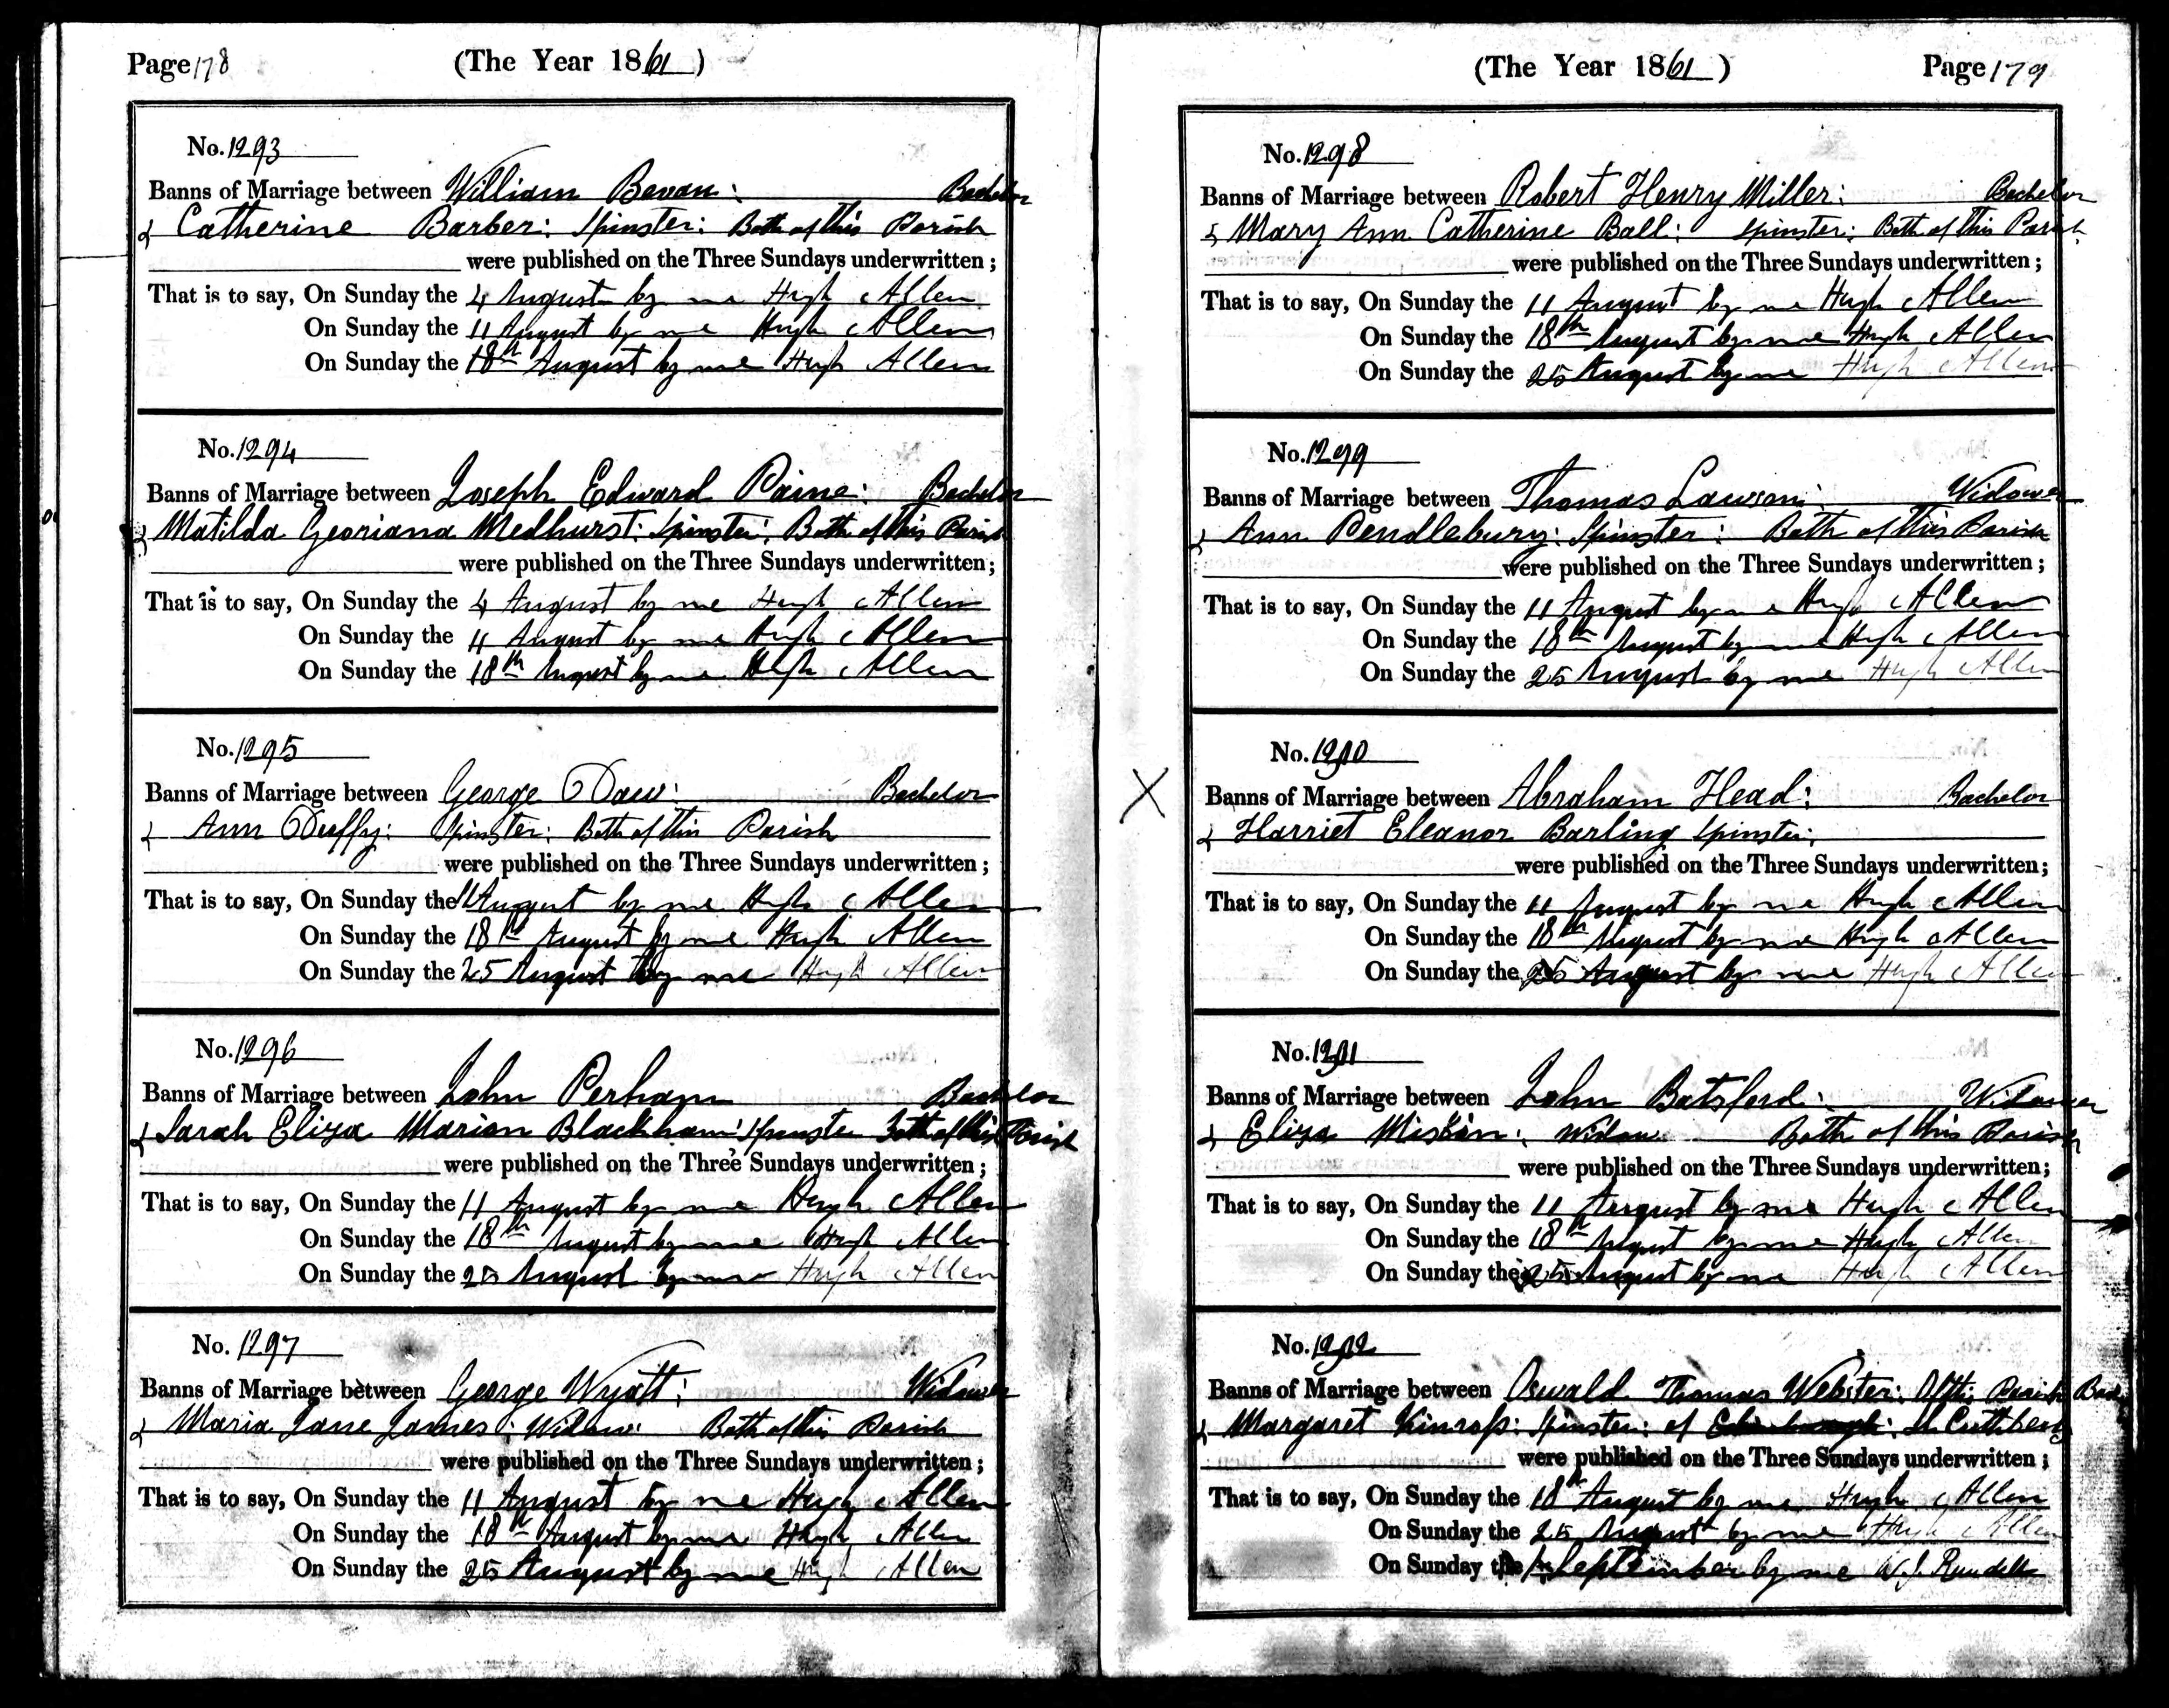 Page 178
(The Year 1861)
No. 1293
Banns of Marriage between William Bevan: Bachelor
& Catherine Barber: Spinster: Both of this Parish
were published on the Three Sundays underwritten;
That is to say, On Sunday the 4 August by me Hugh Allen
On Sunday the 11 August by me Hugh Allen
On Sunday the 18th August by me Hugh Allen
No. 1294
Banns of Marriage between Joseph Edward Paine: Bachelor
& Matilda Georiana Medhurst: Spinster: Both of this Parish
were published on the Three Sundays underwritten;
That is to say, On Sunday the 4 August by me Hugh Allen
On Sunday the 11 August by me Hugh Allen
On Sunday the 18th August by me Hugh Allen
No. 1295
Banns of Marriage between George Daw: Bachelor
& Ann Duffy: Spinster: Both of this Parish
were published on the Three Sundays underwritten;
That is to say, On Sunday the 11 August by me Hugh Allen
On Sunday the 18th August by me Hugh Allen
On Sunday the 25 August by me Hugh Allen
No. 1296
Banns of Marriage between John Perham Bachelor
& Sarah Eliza Marian Blackham: Spinster Both of this Parish
were published on the Three Sundays underwritten;
That is to say, On Sunday the 11 August by me Hugh Allen
On Sunday the 18th August by me Hugh Allen
On Sunday the 25 August by me Hugh Allen
No. 1297
Banns of Marriage between George Wyatt: Widower
& Maria Jane James: Widow: Both of this Parish
were published on the Three Sundays underwritten;
That is to say, On Sunday the 11 August by me Hugh Allen
On Sunday the 18th August by me Hugh Allen
On Sunday the 25 August by me Hugh Allen
(The Year 1861)
Page 179
No. 1298
Banns of Marriage between Robert Henry Miller: Bachelor
& Mary Ann Catherine Ball: Spinster: Both of this Parish
were published on the Three Sundays underwritten;
That is to say, On Sunday the 11 August by me Hugh Allen
On Sunday the 18th August by me Hugh Allen
On Sunday the 25 August by me Hugh Allen
No. 1299
Banns of Marriage between Thomas Lawson: Widower
& Ann Pendlebury: Spinster: Both of this Parish
were published on the Three Sundays underwritten;
That is to say, On Sunday the 11 August by me Hugh Allen
On Sunday the 18th August by me Hugh Allen
On Sunday the 25 August by me Hugh Allen
No.
X
Banns of Marriage between Abraham Head: Bachelor
& Harriet Eleanor Barling Spinster:
were published on the Three Sundays underwritten;
That is to say, On Sunday the 11 August by me Hugh Allen
On Sunday the 18th August by me Hugh Allen
On Sunday the 25 August by me Hugh Allen
No.
Banns of Marriage between John Batsford: Widower
& Eliza Miskin: Widow Both of this Parish
were published on the Three Sundays underwritten;
That is to say, On Sunday the 11 August by me Hugh Allen
On Sunday the 18th August by me Hugh Allen
On Sunday the 25 August by me Hugh Allen
No.
Banns of Marriage between Oswald Thomas Webster: Of this Parish
& Margaret Kinross: Spinster: of St Cuthberts
were published on the Three Sundays underwritten;
That is to say, On Sunday the 18th August by me Hugh Allen
On Sunday the 25 August by me Hugh Allen
On Sunday the September by me W. J. Rundell